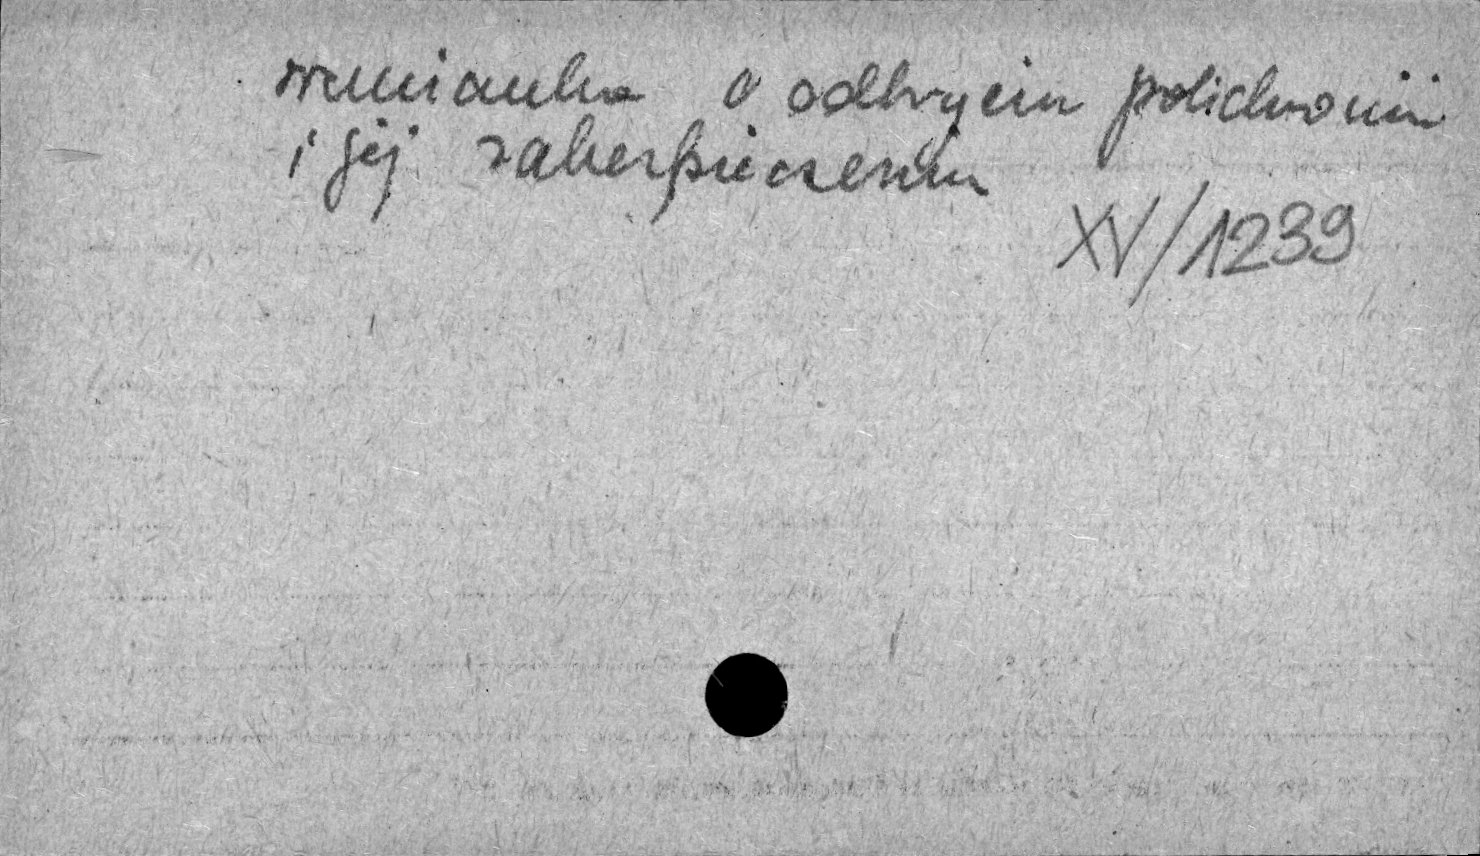 wzmianka o odkryciu polichromii
i jej zabezpieczeniu
XV/1239